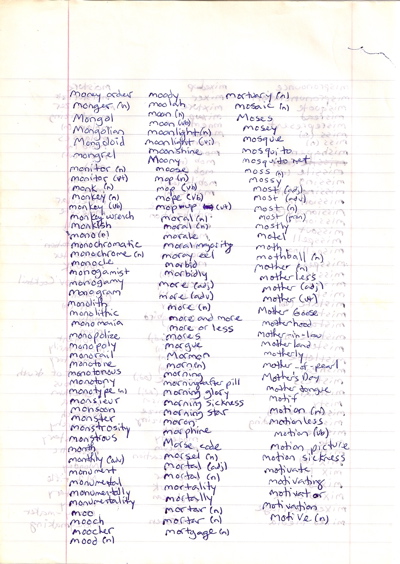 money order
monger (n)
Mongol
Mongolian
Mongoloid
mongrel
monitor (n)
monitor (vt)
monk (n)
monkey (n)
monkey (vb)
monkey wrench
monkish
mono (n)
monochromatic
monochrome (n)
monocle
monogamist
monogamy
monogram
monolith
monolithic
monomania
monopolize
monopoly
monorail
monotone
monotonous
monotony
monotype (n)
monsieur
monsoon
monster
monstrosity
monstrous
month
monthly (adv)
monument
monumental
monumentally
monumentality
moo
mooch
moocher
mood (n)
moody
moolah
moon (n)
moon (vb)
moonlight (n)
moonlight (vi)
moonshine
Moony
moose
mop (n)
mop (vb)
mope (vb)
mop up (vt)
moral (n)
moral (n)
morale
moral majority
moray eel
morbid
morbidly
more (adj)
more (adv)
more (n)
more and more
more or less
mores
morgue
Mormon
morn (n)
morning
morning after pill
morning glory
morning sickness
morning star
moron
morphine
Morse code
morsel (n)
mortal (adj)
mortal (n)
mortality
mortally
mortar (n)
mortar (n)
mortgage (n)
mortuary (n)
mosaic (n)
Moses
mosey
mosque
mosquito
mosquito net
moss (n)
mossy
most (adj)
most (adv)
most (n)
most (prn)
mostly
motel
moth
mothball (n)
mother (n)
motherless
mother (adj)
mother (vt)
Mother Goose
motherhood
mother-in-law
motherland
motherly
mother-of-pearl
Mother's Day
mother tongue
motif
motion (n)
motionless
motion (vb)
motion picture
motion sickness
motivate
motivating
motivator
motivation
motive (n)